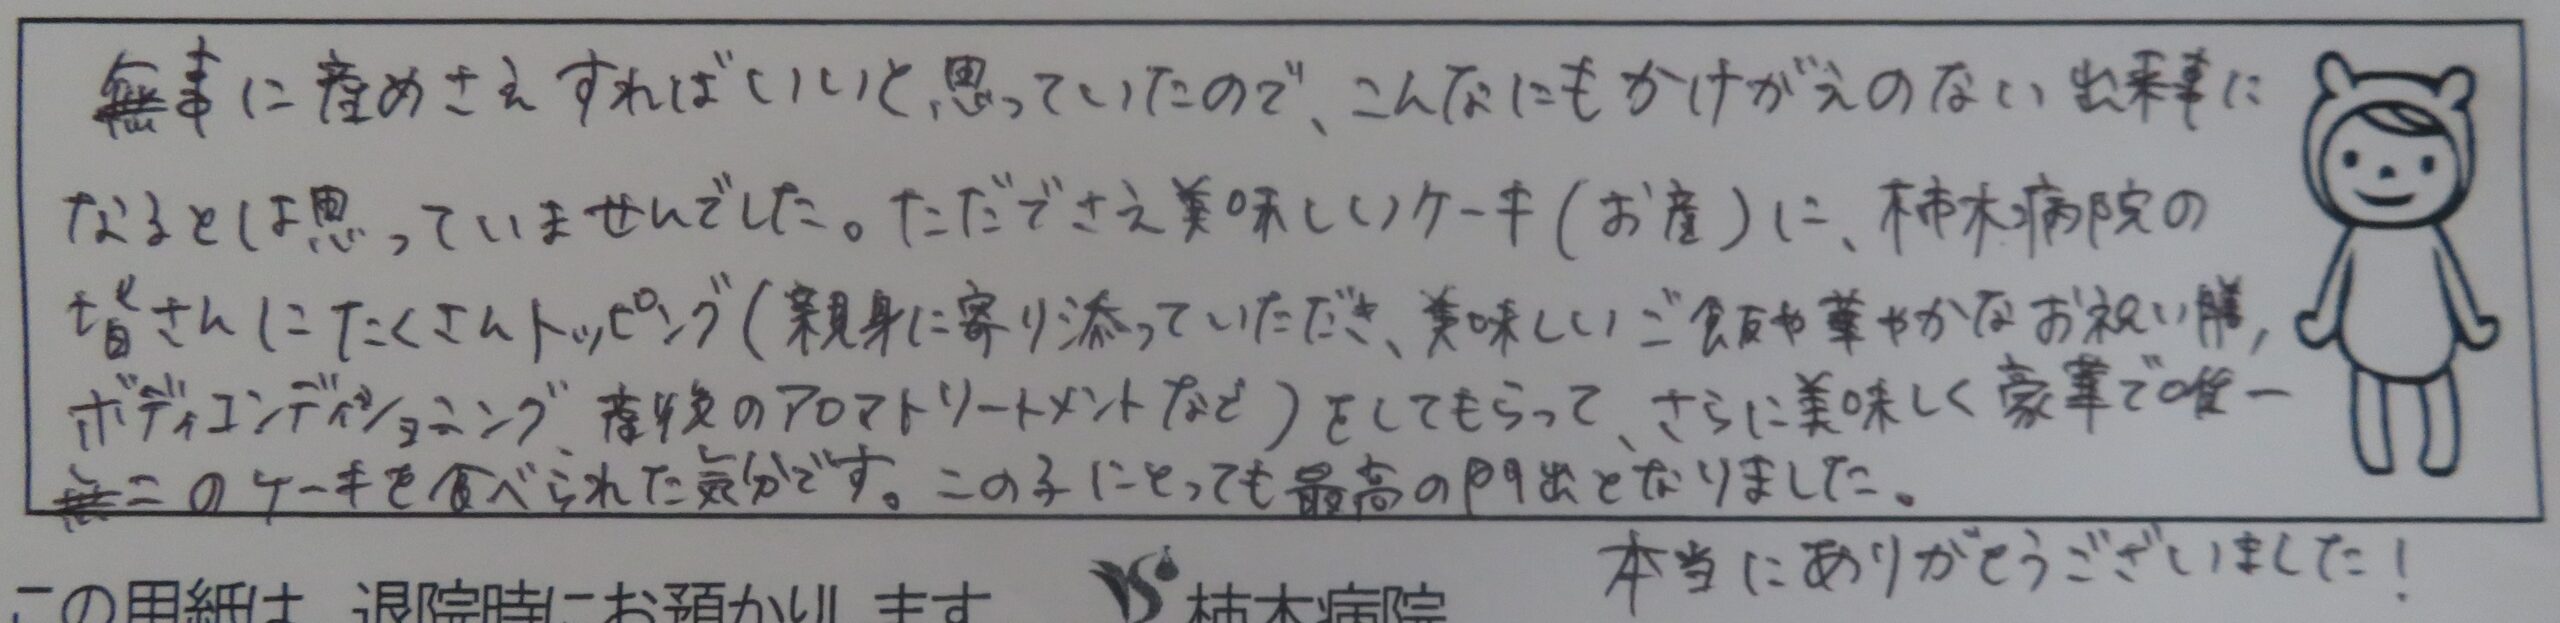 無事に産めさえすればいいと思っていたので、こんなにもかけがえのない出来事に
なるとは思っていませんでした。ただでさえ美味しいケーキ(お産)に、柿木病院の
皆さんにたくさんトッピング(親身に寄り添っていただき、美味しいご飯や華やかなお祝い膳,
ボディコンディショニング、産後のアロマトリートメントなど)をしてもらって、さらに美味しく豪華で唯一
無二のケーキを食べられた気分です。この子にとっても最高の門出となりました。
本当にありがとうございました!
この用紙は、退院時にお預かりします
柿木病院